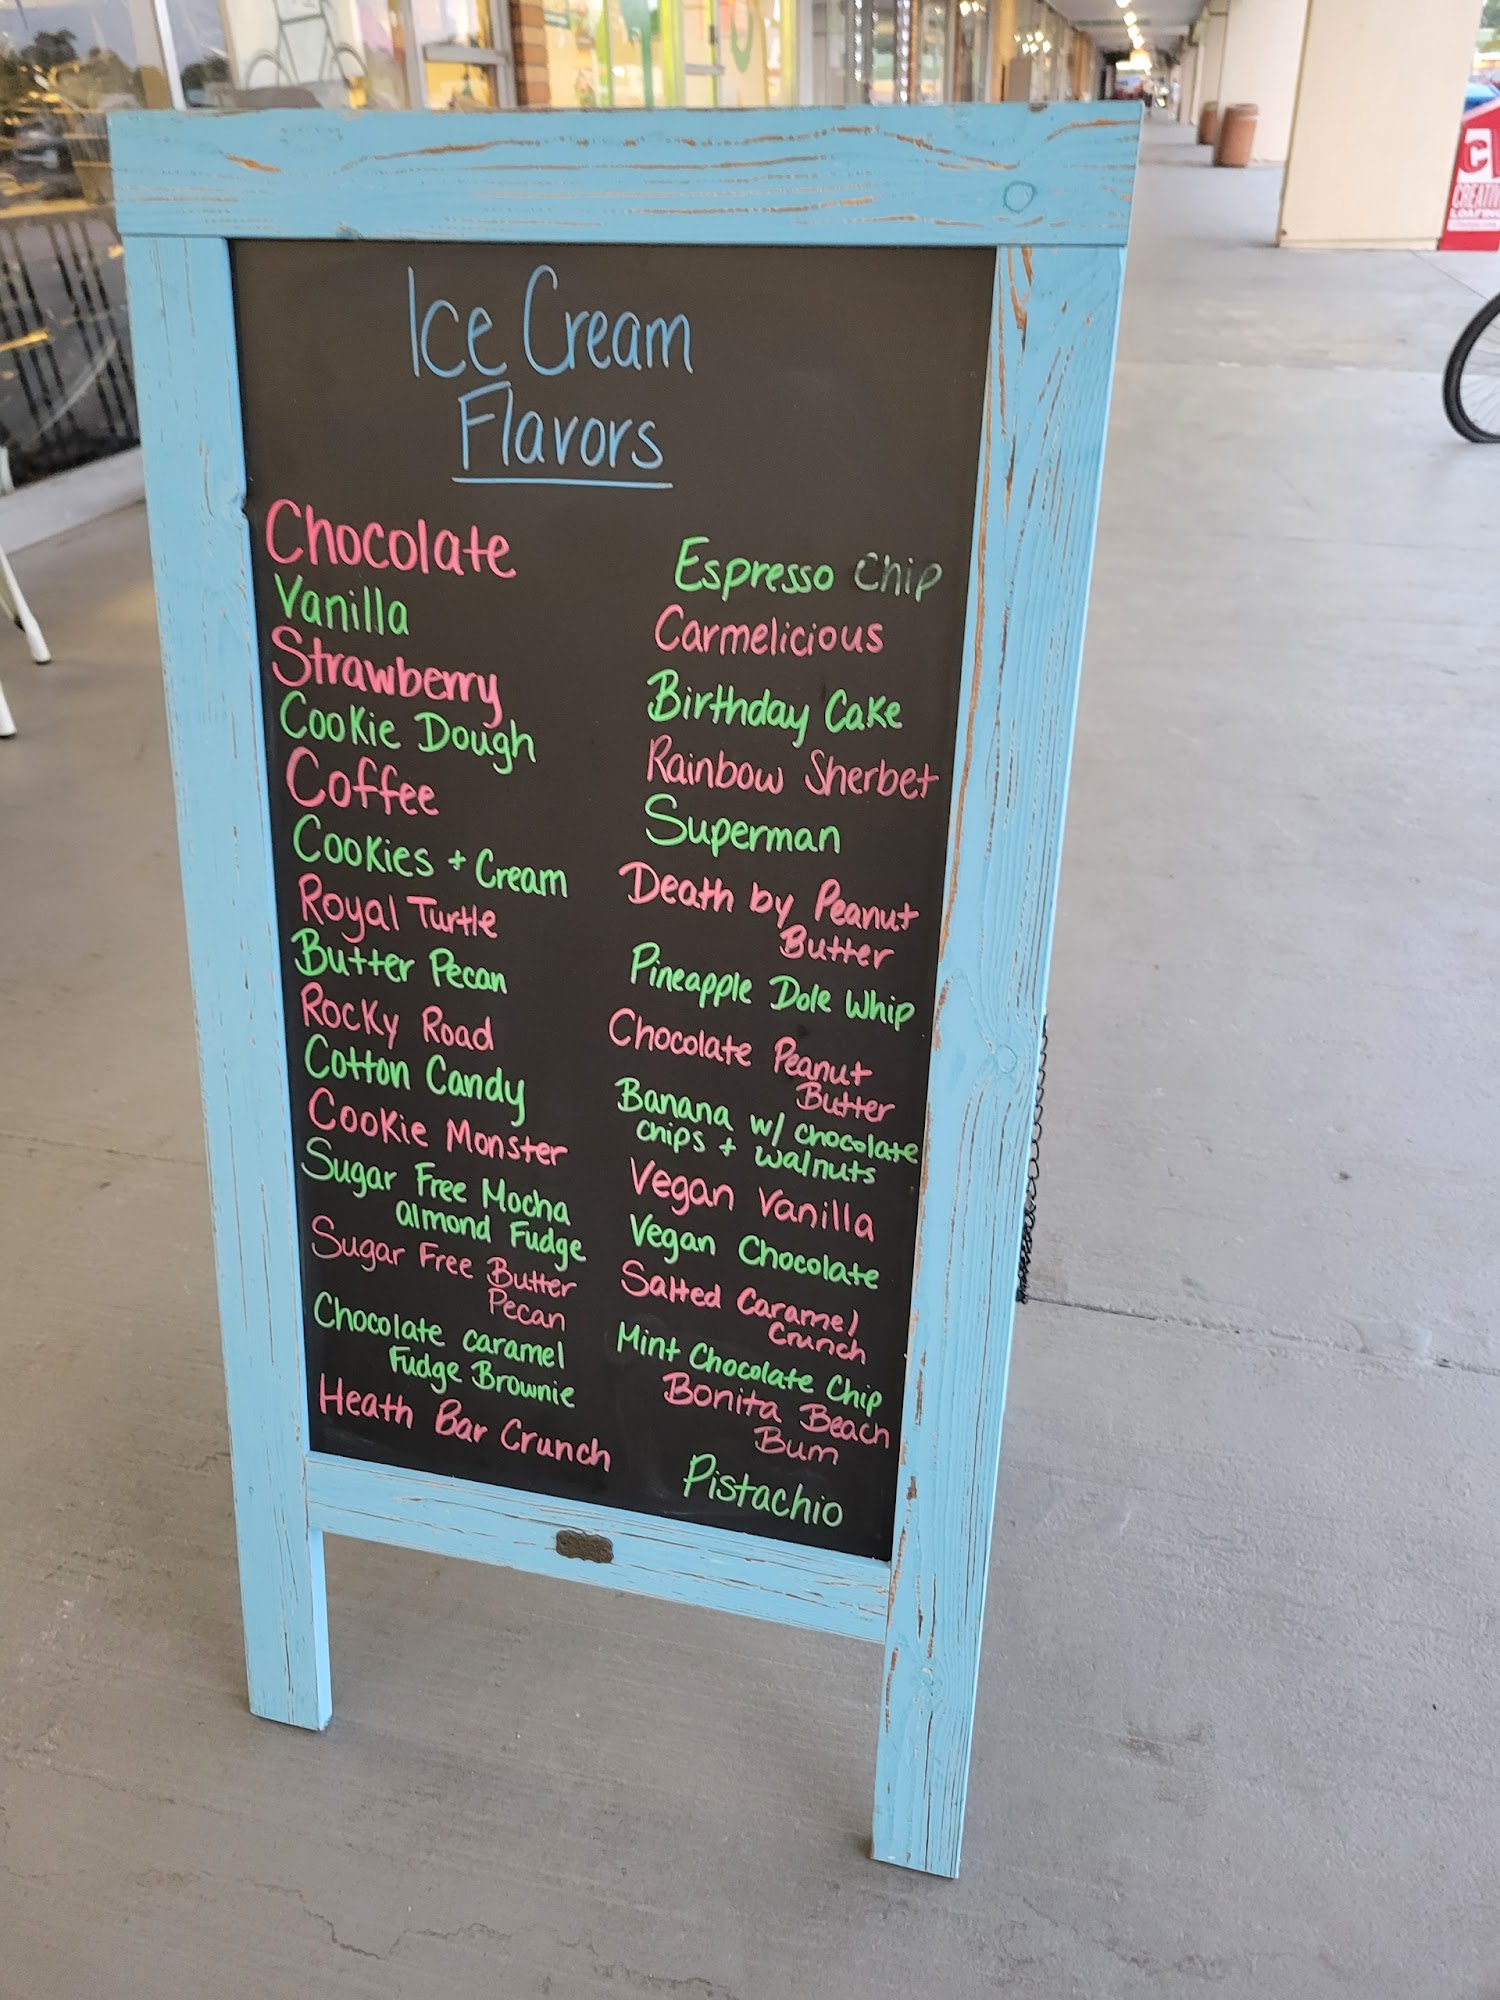 Ice Cream
Flavors
Chocolate
Vanilla
Strawberry
Cookie Dough
Coffee
Cookies + Cream
Royal Turtle
Butter Pecan
Rocky Road
Cotton Candy
Cookie Monster
Sugar Free Mocha
almond Fudge
Sugar Free Butter
Pecan
Chocolate caramel
Fudge Brownie
Heath Bar Crunch
Espresso Chip
Carmelicious
Birthday Cake
Rainbow Sherbet
Superman
Death by Peanut
Butter
Pineapple Dole Whip
Chocolate Peanut
Butter
Banana w/ chocolate
chips + walnuts
Vegan Vanilla
Vegan Chocolate
Salted Caramel
Crunch
Mint Chocolate Chip
Bonita Beach
Bum
Pistachio
C
CREATIV
LOAFING